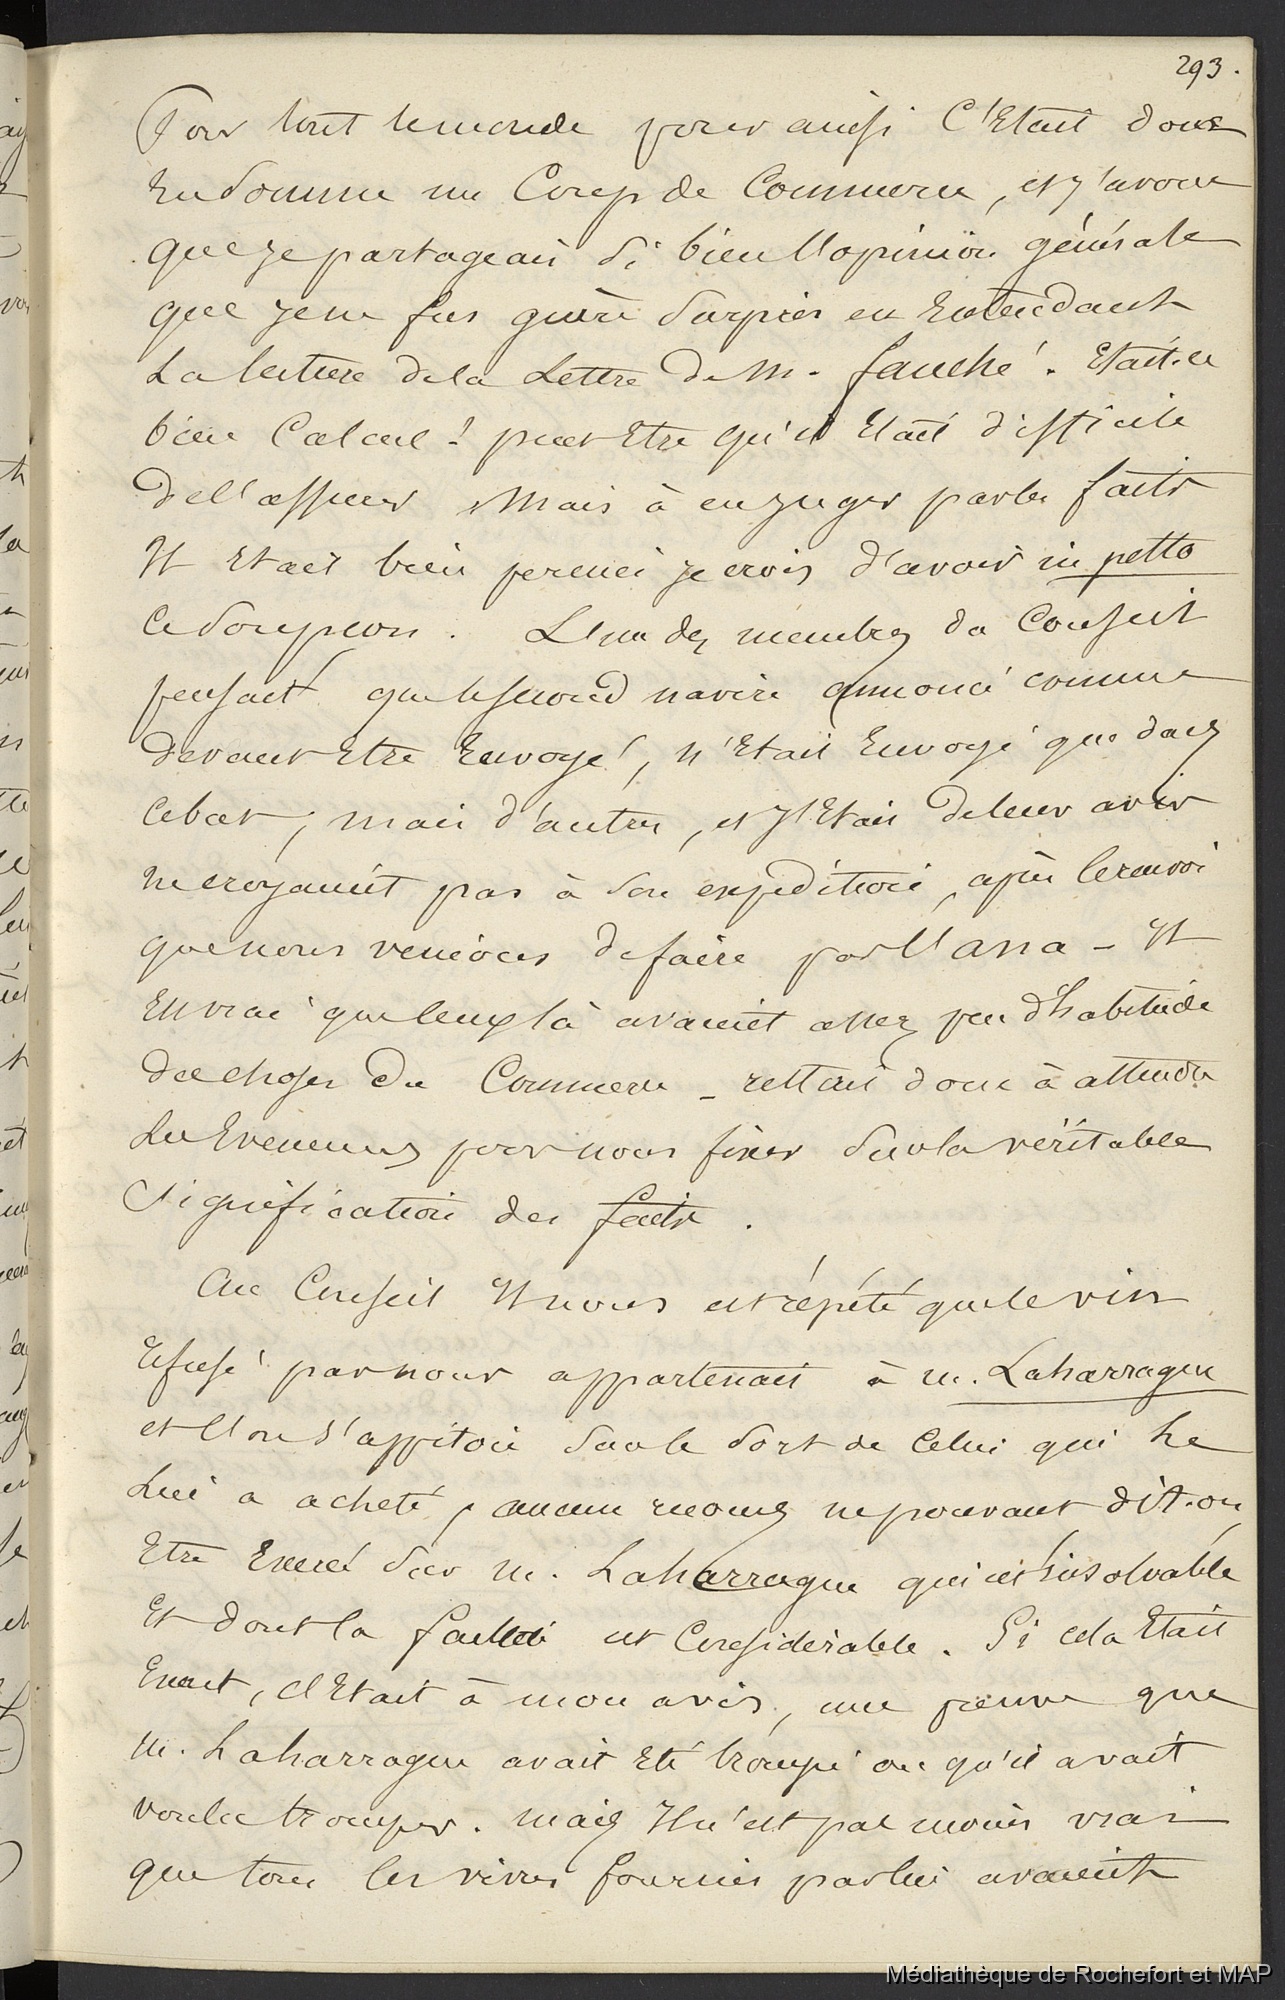 293.
Pour tout le monde pour ainsi C'Etait donc
En Somme un Coup de Commerce, et j'avoue
que je partageais Si bien l'opinion générale
que je ne fus guère Surpris en Entendant
La lecture de la Lettre De M. fauché. Etait-ce
bien Calculé? peut Etre qu'il Etait difficile
de l'assurer Mais à en juger par les faits
Il Etait bien permis je crois d'avoir in petto
Ce Soupçon. L'un des membres du Conseil
pensait que le Second navire annoncé comme
devant Etre Envoyé, n'Etait Envoyé que dans
ce but, mais d'autres, et j'Etais de leur avis
ne croyaient pas à Son expédition, après le renvoi
que nous venions de faire par l'anna - Il
Est vrai que ceux là avaient assez peu d'habitude
des choses du Commerce - restait donc à attendre
Les Evenemens pour nous fixer Sur la véritable
Signification des faits.
Au Conseil Il nous est répété que le vin
refusé par nous appartenait à m. Laharrague
et l'on s'appitoie Sur le Sort de Celui qui le
Lui a acheté, aucun recours ne pouvant dit-on
Etre Exercé Sur m. Laharrague qui est insolvable
Et dont la faillite est Considérable. Si cela Etait
Exact, c'Etait à mon avis, une preuve que
m. Laharrague avait Eté trompé ou qu'il avait
voulu tromper. mais Il n'est pas moins vrai
que tous les vivres fournis par lui avaient
Médiathèque de Rochefort et MAP